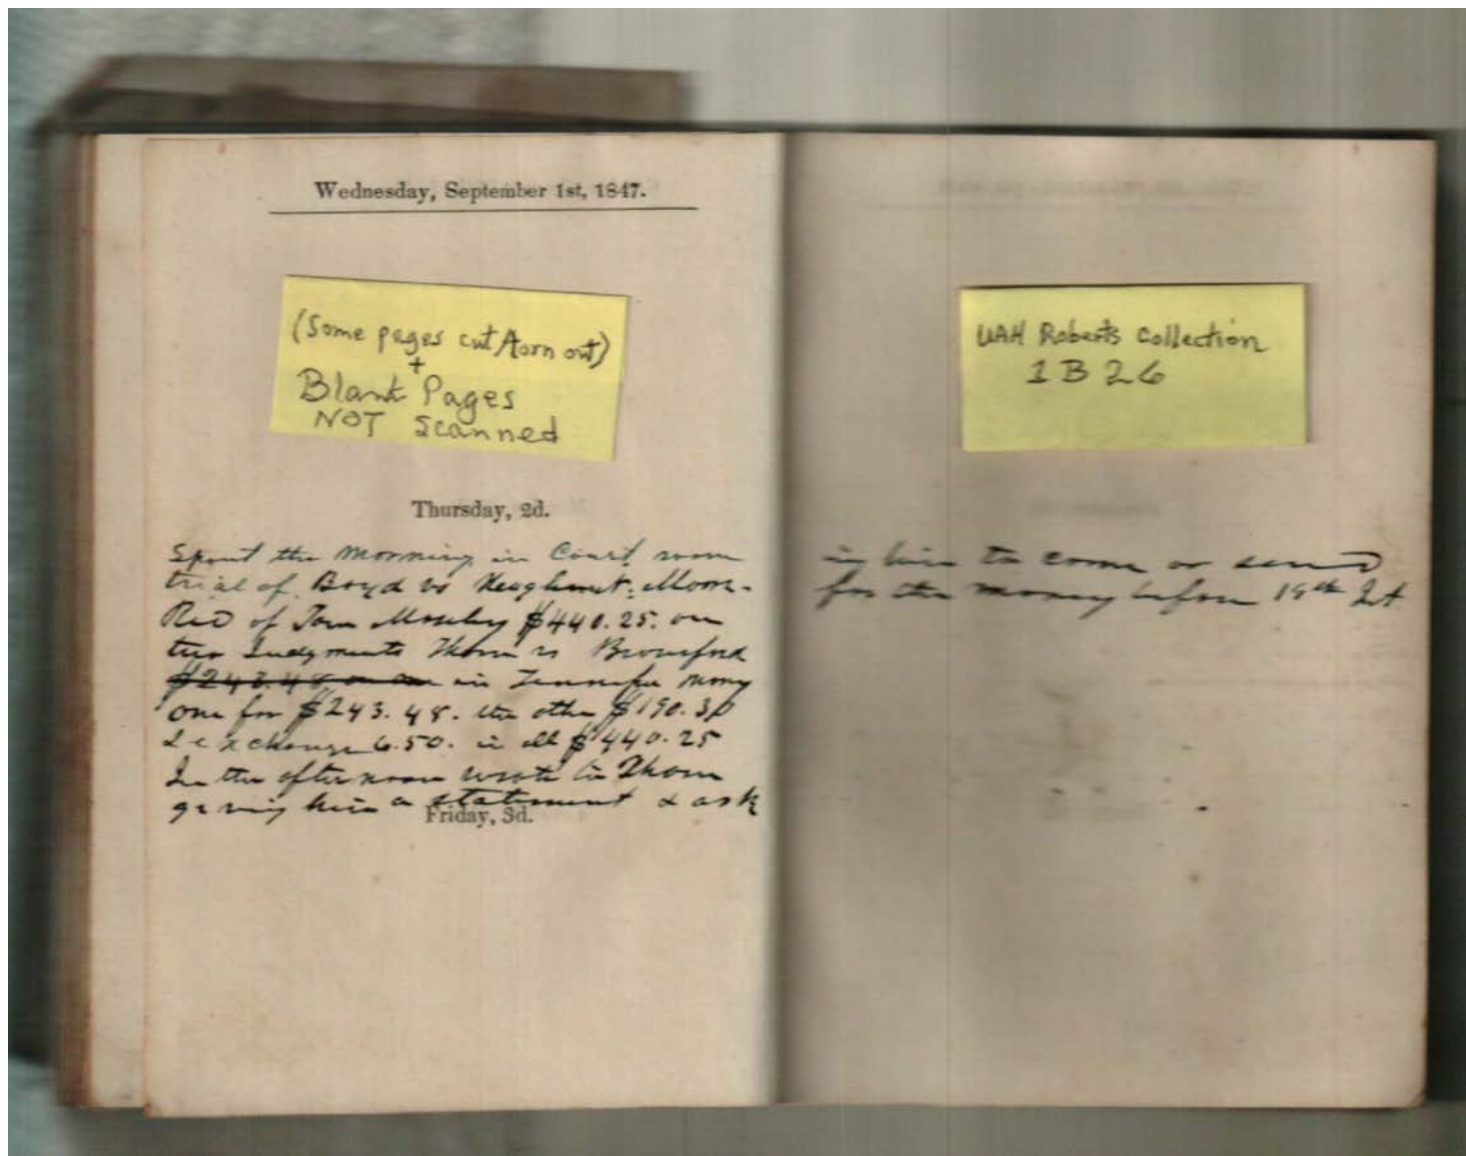 Wednesday, September 1st, 1847.
(Some pages cut/torn out)
+
Blank Pages
NOT Scanned
Thursday, 2d.
Spent the morning in Court room
trial of Boyd vs
Recd of Tom Moseley $440.25. on
two Judgments Thom vs
$243.48 on one in money
one for $243.48. the other $190.30
& exchange 6.50. in all $440.25
In the afternoon wrote to Thom
giving him a statement & ask
Friday, 3d.
UAH Roberts Collection
1B26
ing him to come or send
for the money before 19th